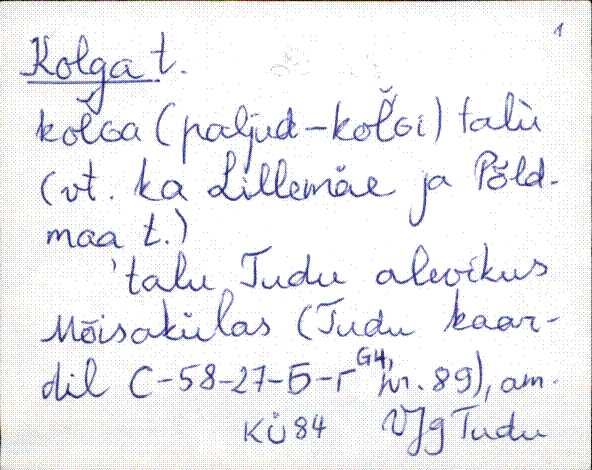 1
Kolga t.
kol̆Ga (paljud-kol̆Gi) talu̬
(vt. ka Lillemäe ja Põld-
maa t.)
'talu Tudu alevikus
Mõisakülas (Tudu kaar-
dil C-58-27-Б-Г G4, nr. 89), am.
KÜ84 VJg Tudu